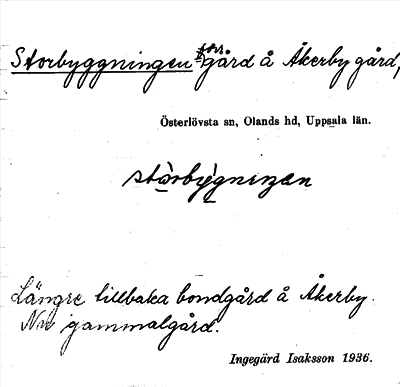 Storbyggningen förs gård å Åkerby gård,
Österlövsta sn, Olands hd, Uppsala län.
stòrbýgniŋen
Längre tillbaka bondgård å Åkerby.
Nu gammalgård.
Ingegärd Isaksson 1936.